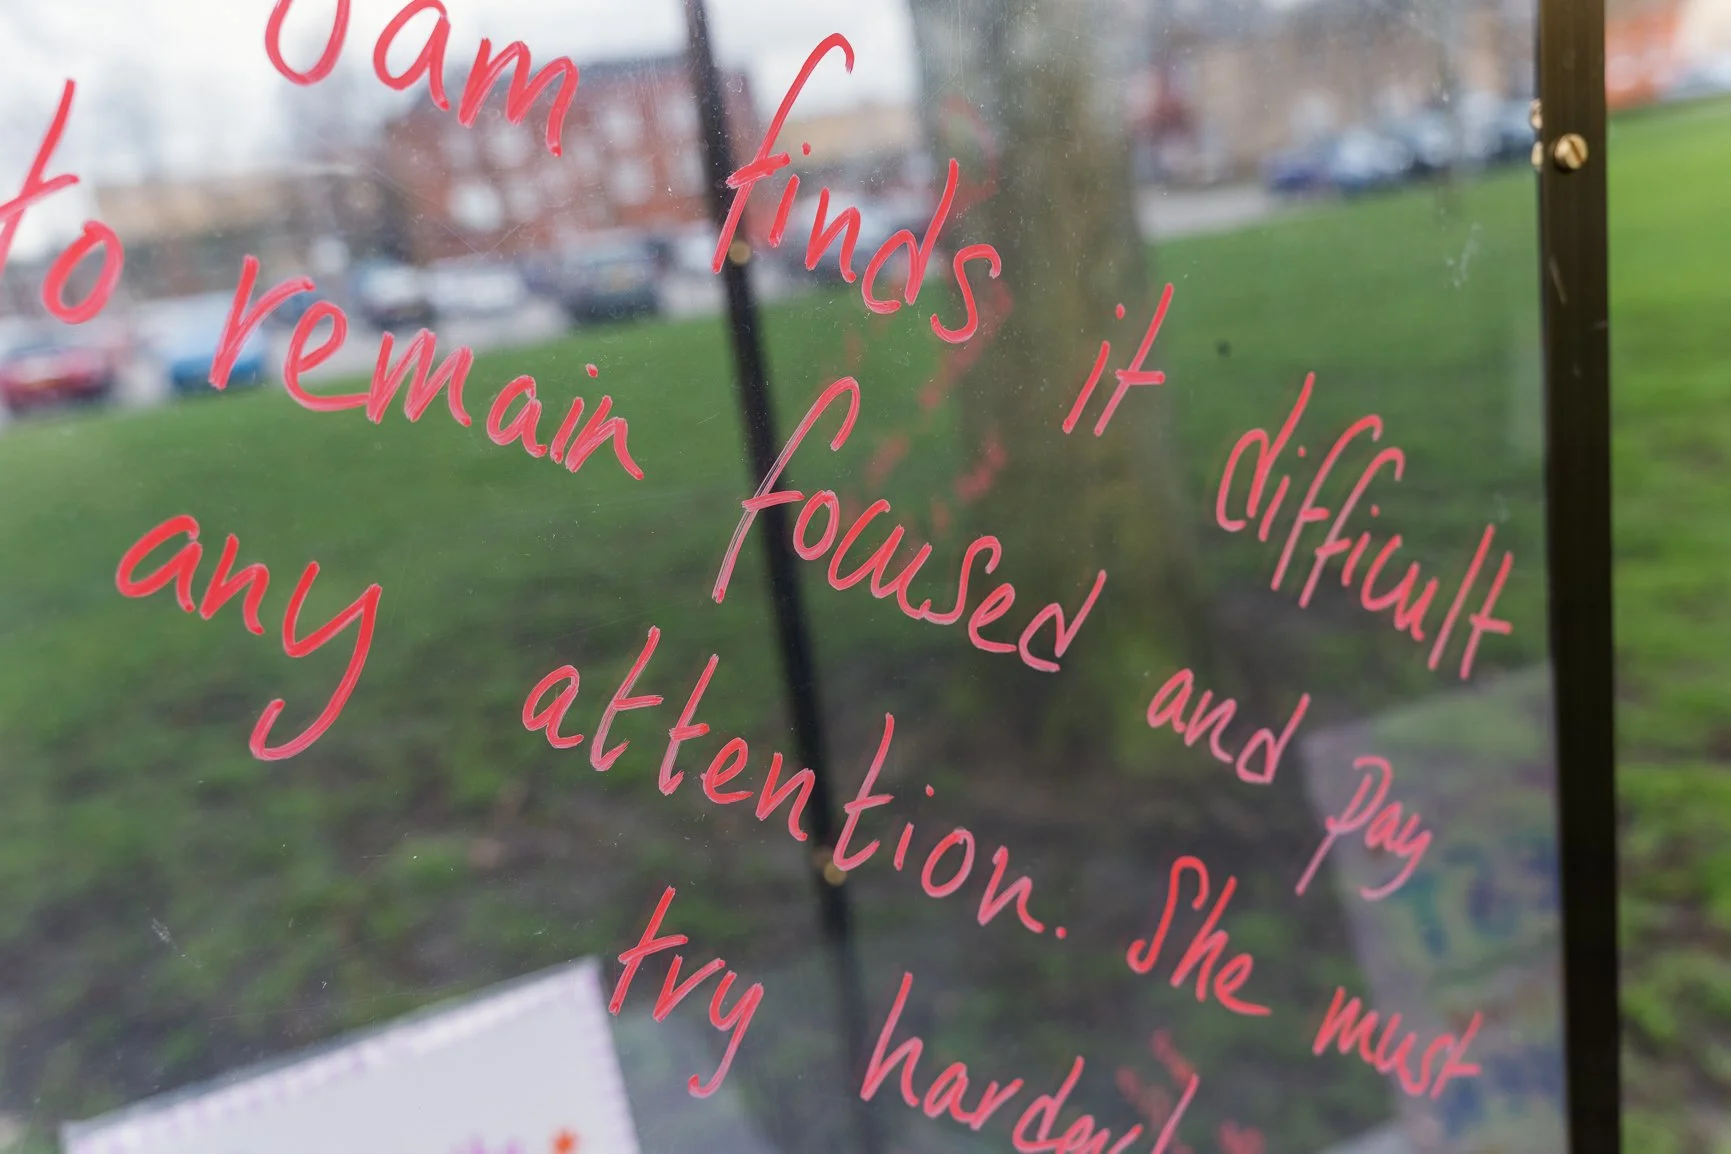 finds it difficult
to remain focused and pay
any attention. She must
try harder!